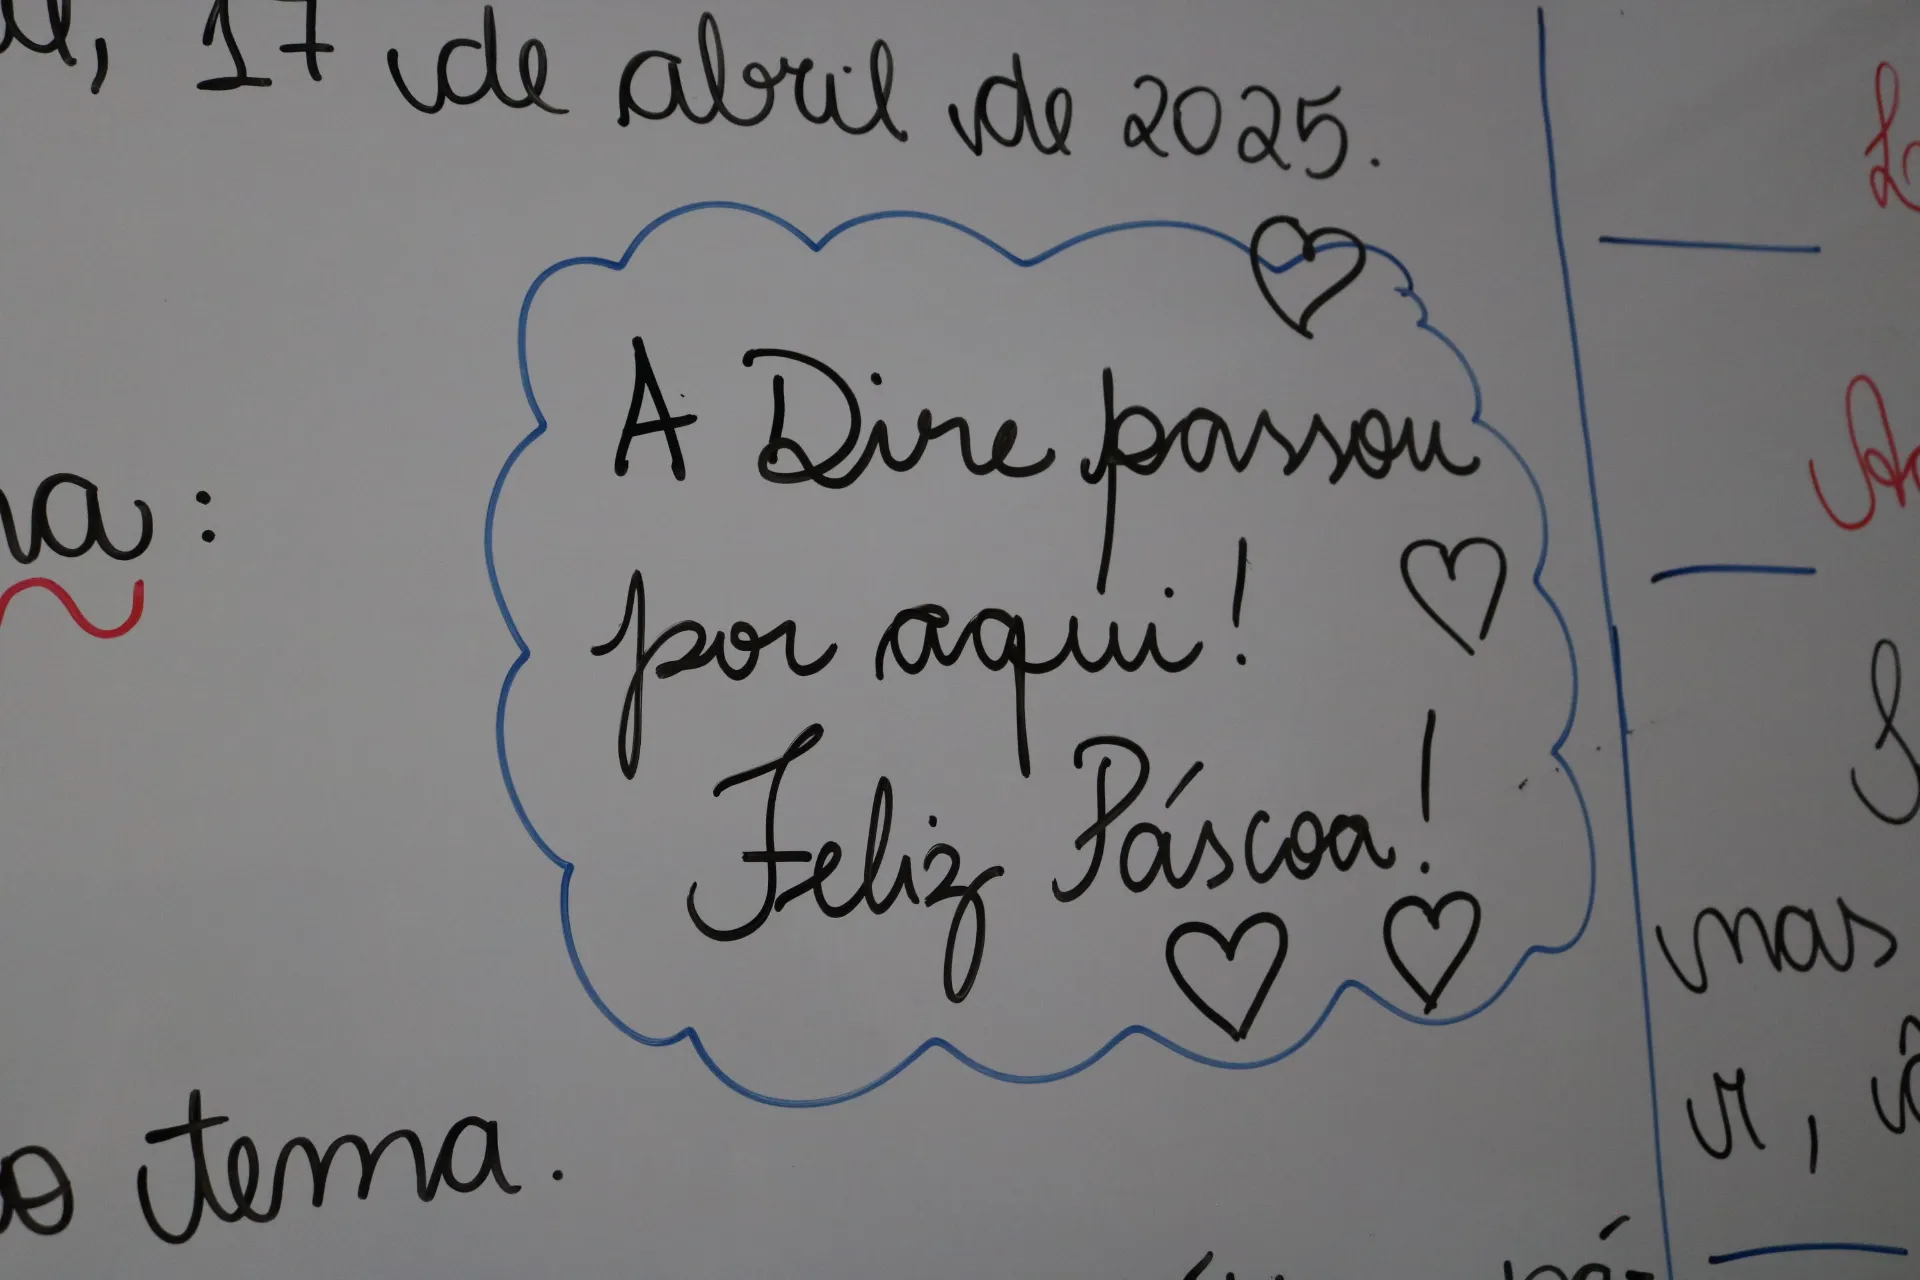 , 17 de abril de 2025.
A Dire passou
por aqui!
Feliz Páscoa!
:
tema.
mas